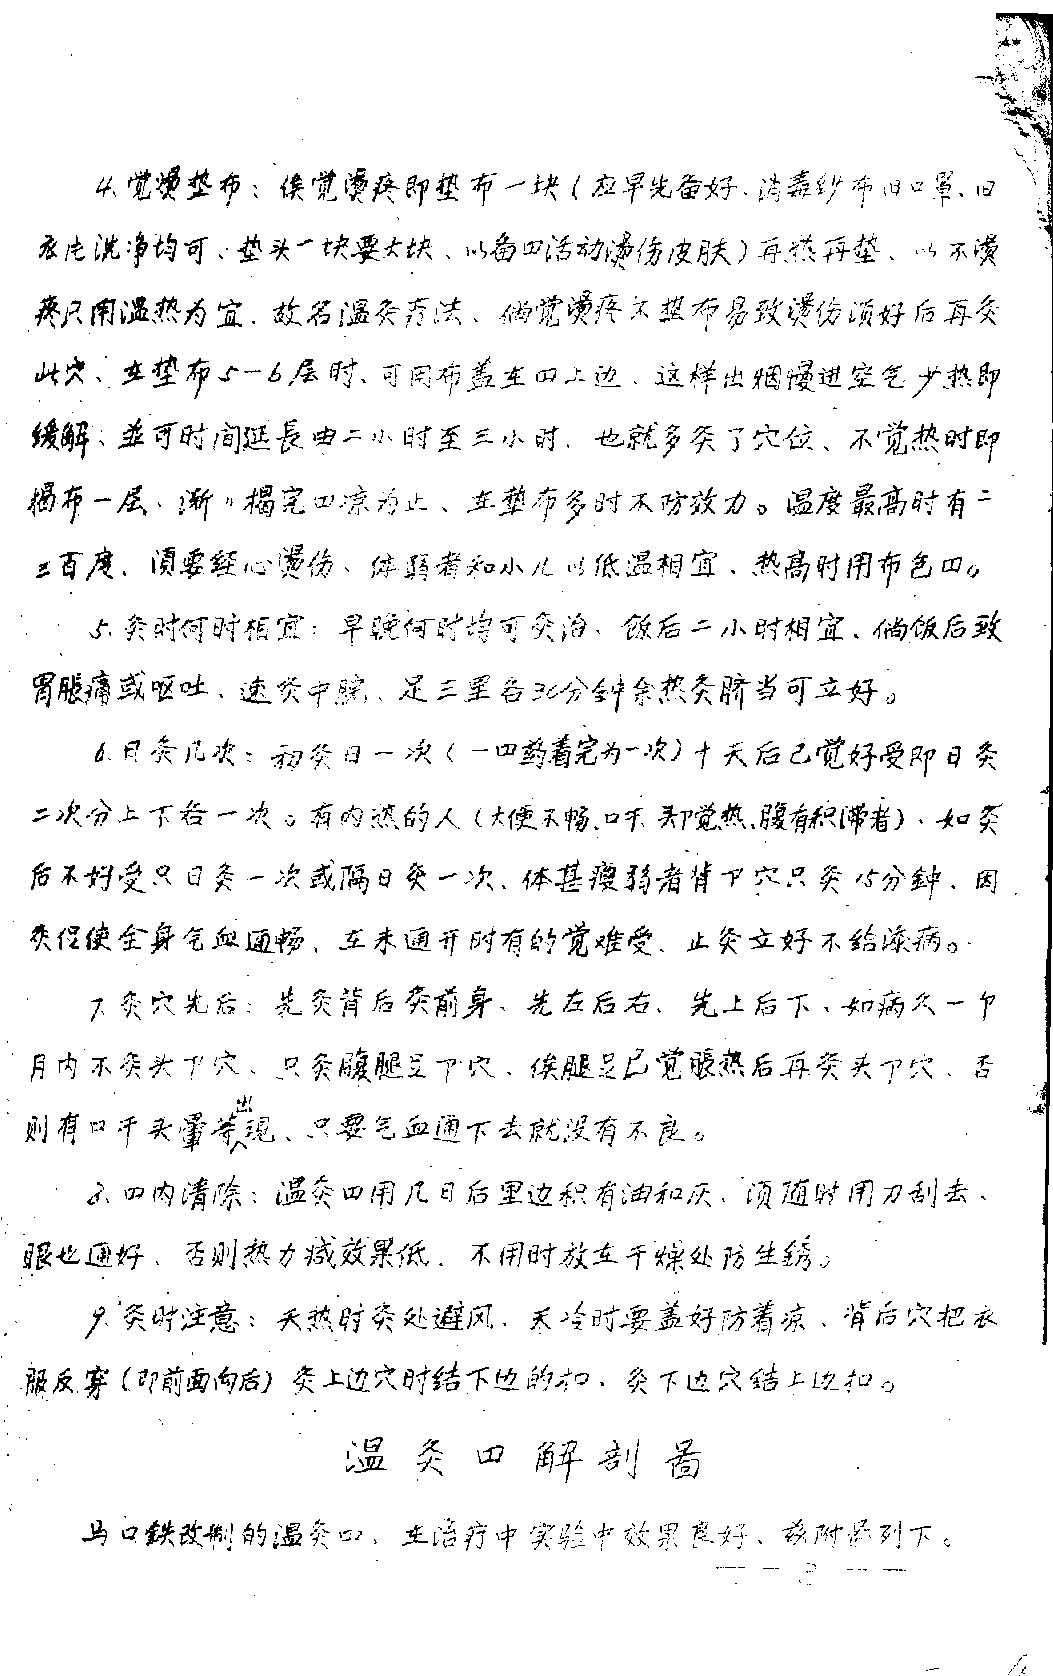 4、觉燙垫布：俟觉燙疼即垫布一块（应早先备好、消毒纱布旧口罩、旧
衣片洗净均可、垫头一块要大块、以备四活动燙伤皮肤）再热再垫、以不燙
疼只用温热为宜、故名温灸疗法、倘觉燙疼不垫布易致燙伤须好后再灸
此穴、在垫布5-6层时、可用布盖在四上边、这样出烟慢进空气少热即
缓解、並可时间延長由二小时至三小时、也就多灸了穴位、不觉热时即
揭布一层、渐〃揭完四凉为止、在垫布多时不防效力。温度最高时有二
三百度、須要经心燙伤、体弱者和小儿以低温相宜、热高时用布包四。
5、灸时何时相宜：早晚何时均可灸治、饭后二小时相宜、倘饭后致
胃胀痛或呕吐、速灸中脘、足三里各30分钟余热灸脐当可立好。
6、日灸几次：初灸日一次（一四药着完为一次）十天后已觉好受即日灸
二次分上下各一次。有内热的人（大便不畅、口干、头卩觉热、腹有积滞者）、如灸
后不好受只日灸一次或隔日灸一次、体甚瘦弱者背卩穴只灸15分鈡、因
灸促使全身气血通畅、在未通开时有的觉难受、止灸立好不给添病。
7、灸穴先后：先灸背后灸前身、先左后右、先上后下、如病久一个
月内不灸头卩穴、只灸腹腿足卩穴、俟腿足已觉脹热后再灸头卩穴、否
则有口干头晕等出现、只要气血通下去就没有不良。
8、四内清除：温灸四用几日后里边积有油和灰、须随时用刀刮去、
眼也通好、否则热力减效果低、不用时放在干燥处防生锈。
9、灸时注意：天热时灸处避风、天冷时要盖好防着凉、背后穴把衣
服反穿（即前面向后）灸上边穴时结下边的扣、灸下边穴结上边扣。
温灸四解剖图
马口鉄改制的温灸四、在治疗中实验中效果良好、兹附图列下。